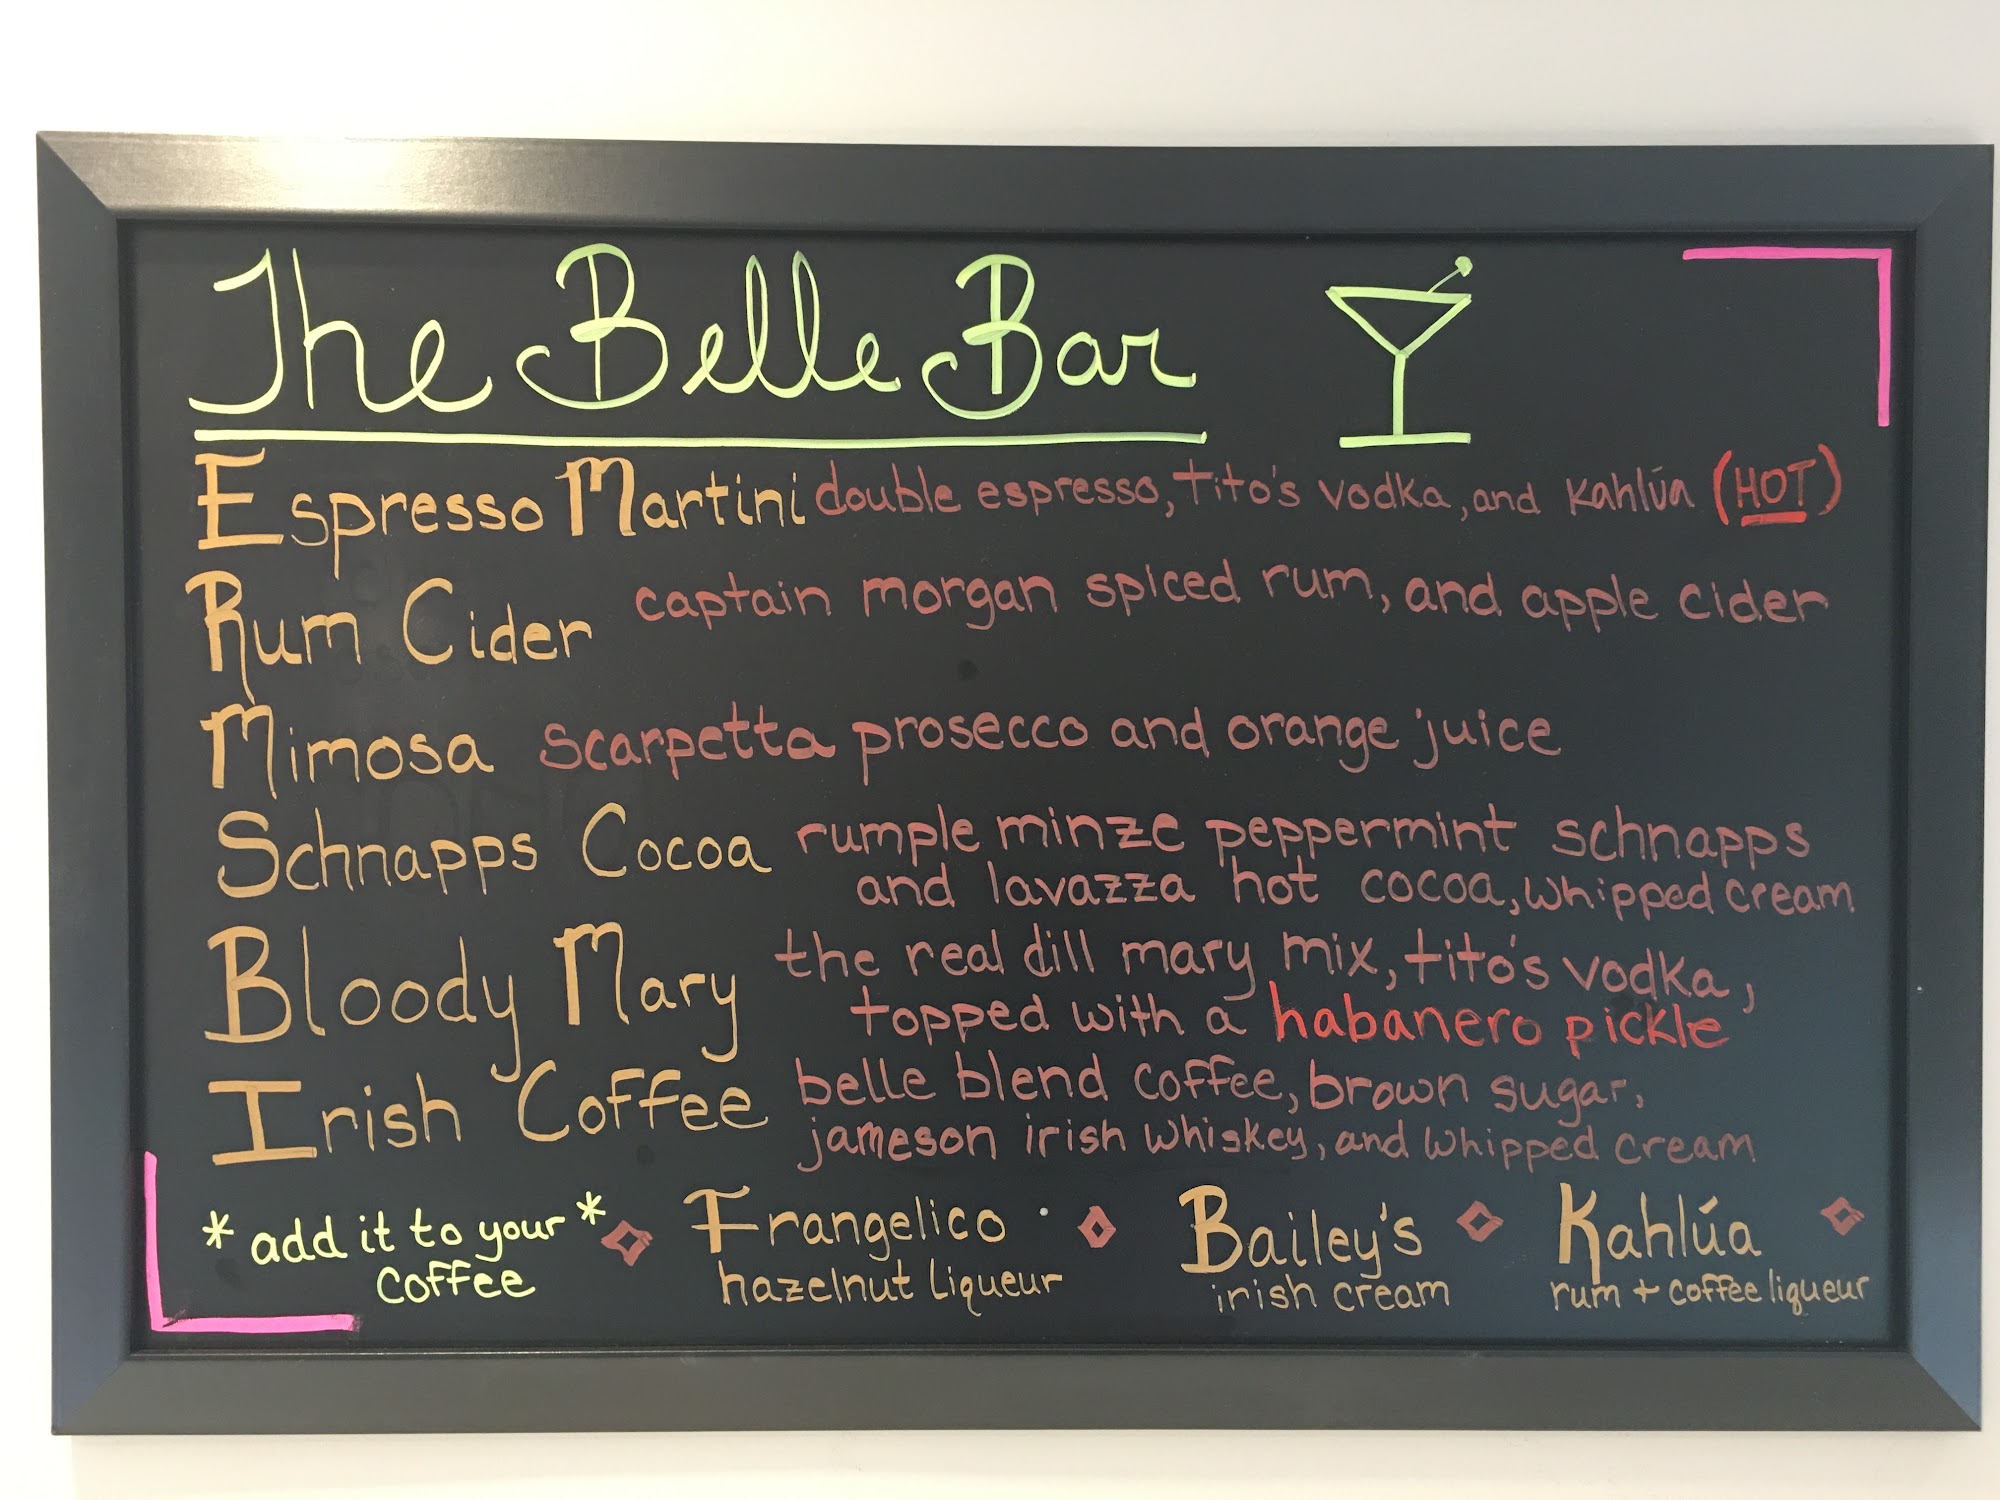 The Belle Bar
Espresso Martini double espresso, tito's vodka, and kahlúa (HOT)
Rum Cider captain morgan spiced rum, and apple cider
Mimosa scarpetta prosecco and orange juice
Schnapps Cocoa rumple minze peppermint schnapps
and lavazza hot cocoa, whipped cream
Bloody Mary the real dill mary mix, tito's vodka,
topped with a habanero pickle
Irish Coffee belle blend coffee, brown sugar,
jameson irish whiskey, and whipped cream
*add it to your* Frangelico Bailey's Kahlúa
coffee hazelnut liqueur irish cream rum + coffee liqueur